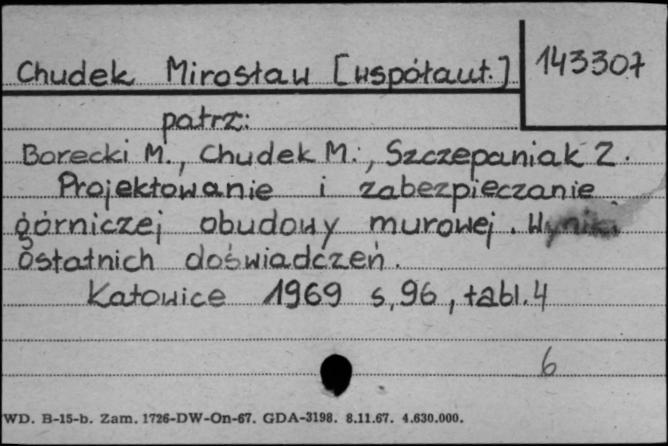 Chudek Mirosław [współaut.]
143307
patrz:
Borecki M., Chudek M., Szczepaniak Z.
Projektowanie i zabezpieczanie
górniczej obudowy murowej. Wyniki
ostatnich doświadczeń.
Katowice 1969 s. 96, tabl. 4
6
WD. B-15-b. Zam. 1726-DW-On-67. GDA-3198. 8.11.67. 4.630.000.